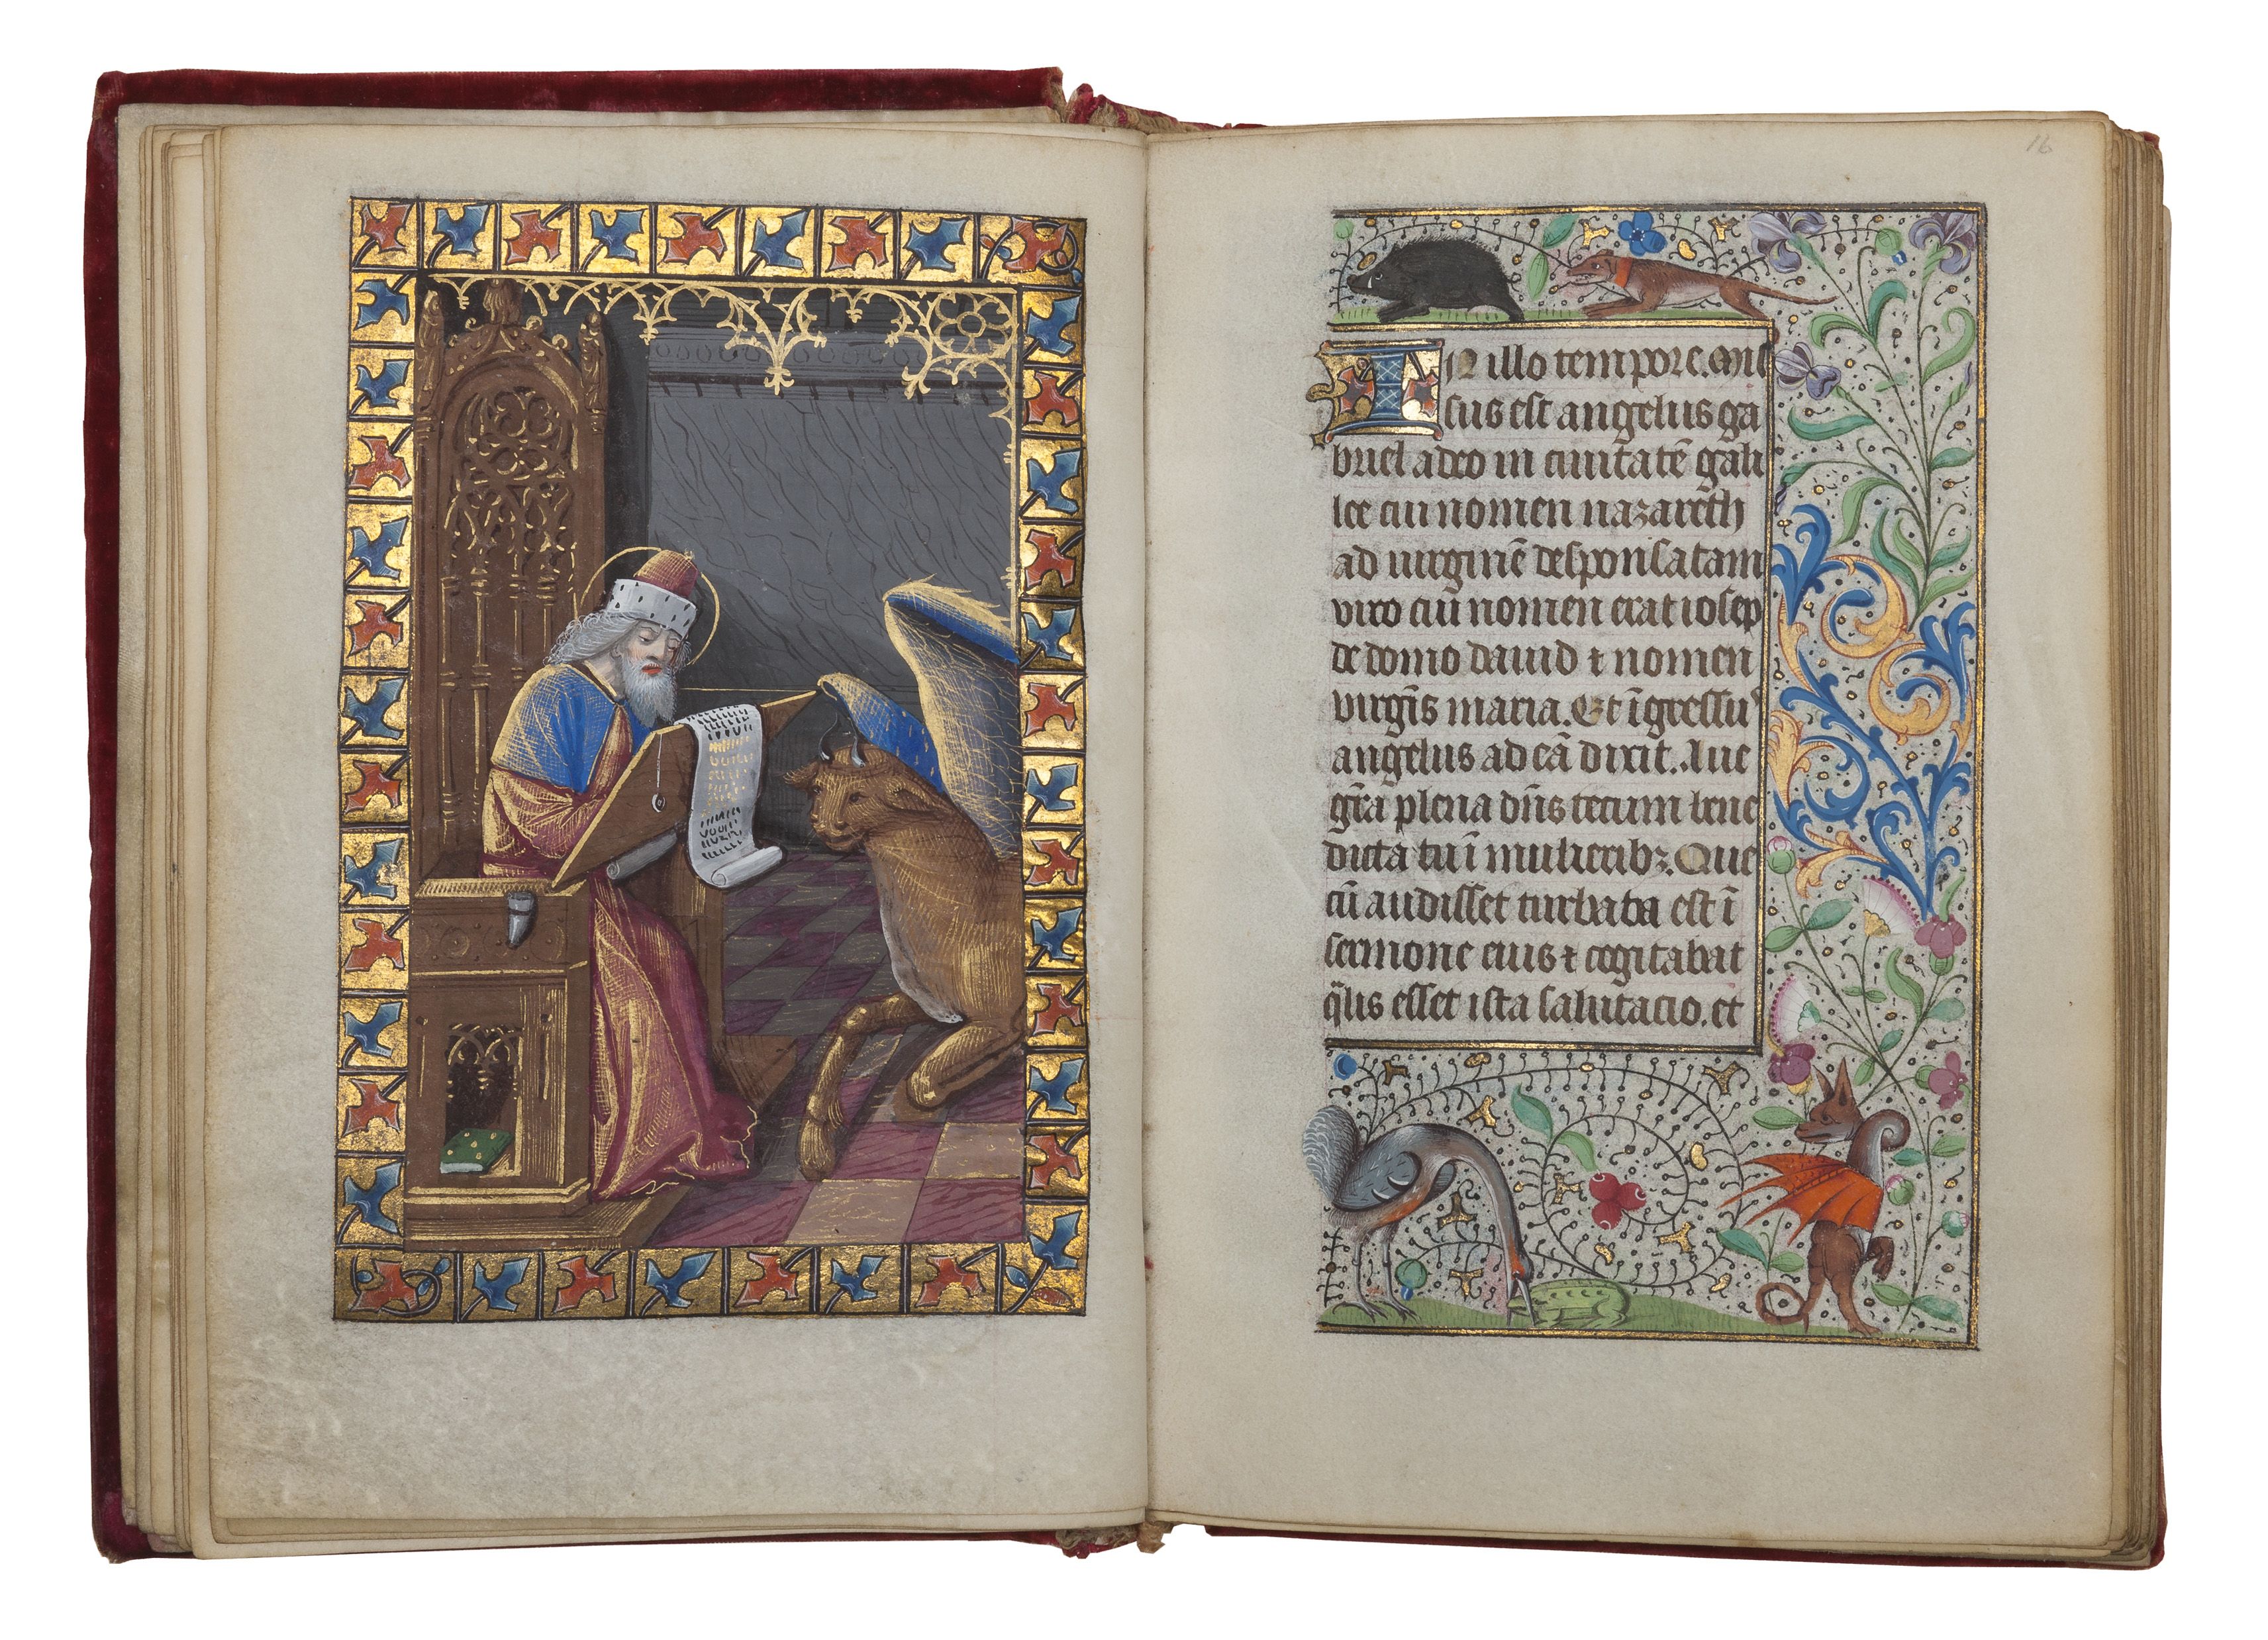 16
In illo tempore. Mis
sus est angelus ga
briel a deo in ciuitatē gali
lee cui nomen nazareth
ad uirginē desponsatam
viro cui nomen erat iosep
de domo dauid ⁊ nomen
virgīs maria. Et īgressu᷒
angelus ad eā dixit. Aue
grā plena dn̄s tecum bene
dicta tu ī mulieribꝫ. Que
cū audisset turbata est ī
sermone eius ⁊ cogitabat
q̄lis esset ista salutacio. et